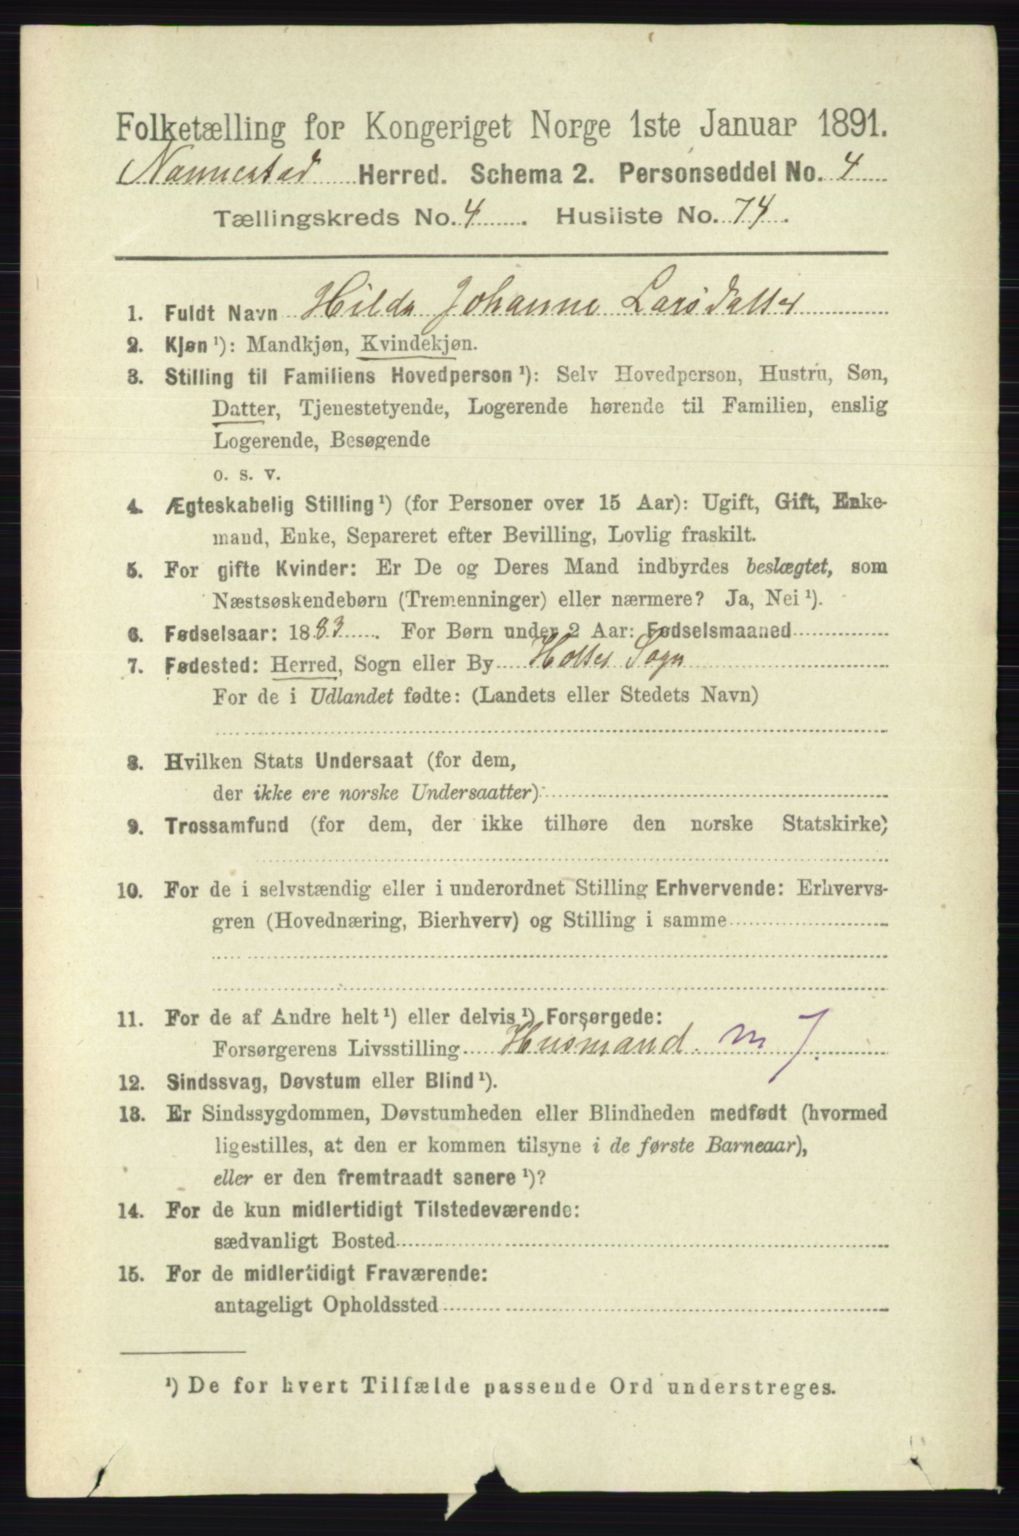 Folketælling for Kongeriget Norge 1ste Januar 1891.
Nannestad Herred. Schema 2. Personseddel No. 4
Tællingskreds No. 4. Husliste No. 74.
1. Fuldt Navn Hilda Johanne Larsdatter
2. Kjøn ¹): Mandkjøn, Kvindekjøn.
3. Stilling til Familiens Hovedperson ¹): Selv Hovedperson, Hustru, Søn,
Datter, Tjenestetyende, Logerende hørende til Familien, enslig
Logerende, Besøgende
o. s. v.
4. Ægteskabelig Stilling ¹) (for Personer over 15 Aar): Ugift, Gift, Enke-
mand, Enke, Separeret efter Bevilling, Lovlig fraskilt.
5. For gifte Kvinder: Er De og Deres Mand indbyrdes beslægtet, som
Næstsøskendebørn (Tremenninger) eller nærmere? Ja, Nei ¹).
6. Fødselsaar: 1883. For Børn under 2 Aar: Fødselsmaaned
7. Fødested: Herred, Sogn eller By Holter Sogn
For de i Udlandet fødte: (Landets eller Stedets Navn)
8. Hvilken Stats Undersaat (for dem,
der ikke ere norske Undersaatter)
9. Trossamfund (for dem, der ikke tilhøre den norske Statskirke)
10. For de i selvstændig eller i underordnet Stilling Erhvervende: Erhvervs-
gren (Hovednæring, Bierhverv) og Stilling i samme
11. For de af Andre helt ¹) eller delvis ¹) Forsørgede:
Forsørgerens Livsstilling Husmand. m J.
12. Sindssvag, Døvstum eller Blind ¹).
13. Er Sindssygdommen, Døvstumheden eller Blindheden medfødt (hvormed
ligestilles, at den er kommen tilsyne i de første Barneaar),
eller er den fremtraadt senere ¹)?
14. For de kun midlertidigt Tilstedeværende:
sædvanligt Bosted
15. For de midlertidigt Fraværende:
antageligt Opholdssted
¹) De for hvert Tilfælde passende Ord understreges.